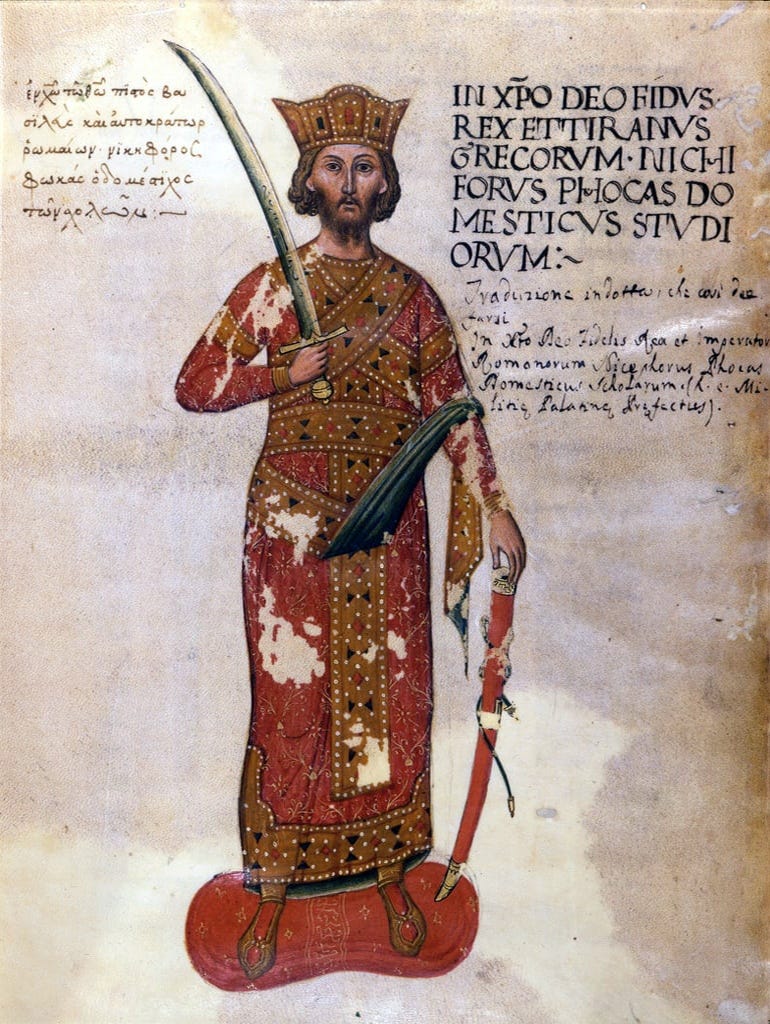 ἐν χω τω θω πιστὸς βα
σιλεὺς καὶ αυτοκράτωρ
ρωμαίων· νικηφόρος
φωκάς ὁ δομέστιχος
τῶν σχολῶν :~
IN XPO DEO FIDVS·
REX ET TIRANVS
GRECORVM· NICHI
FORVS PHOCAS DO
MESTICVS STVDI
ORVM:~
Traduzione indotta; che così dee
farsi
In Xto Deo Fidelis Rex et Imperator
Romanorum Nicephorus Phocas
Domesticus Scholarum (h. e. Mi-
litię Palatinę Pręfectus).